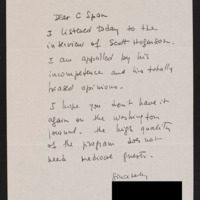 Dear C Span
I listened today to the
interview of Scott Hogenson.
I am appalled by his
incompetence and his totally
biased opinions.
I hope you don't have it
again on the Washington
Journal. The high quality
of the program does not
need mediocre guests.
Sincerely